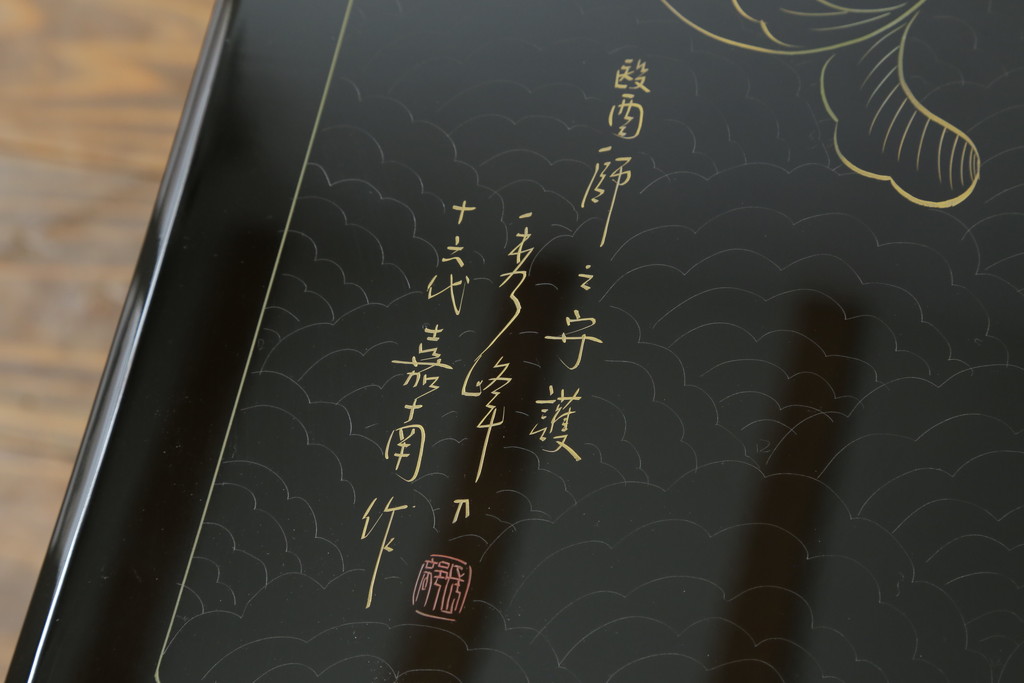 醫師之守護
秀峰刀
十六代嘉南作